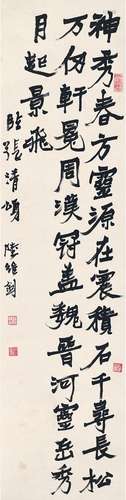 神秀春方靈源在震積石千尋長松
万仞軒冕周漢冠盖魏晉河靈岳秀
月起景飛 臨張清頌 陸維釗